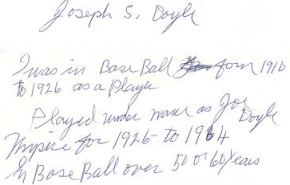 Joseph S. Doyle
I was in Base Ball from 1910
to 1926 as a Player
Played under name as Joe Doyle
Umpire for 1926 - to 1964
In Base Ball over 50 or 60 years